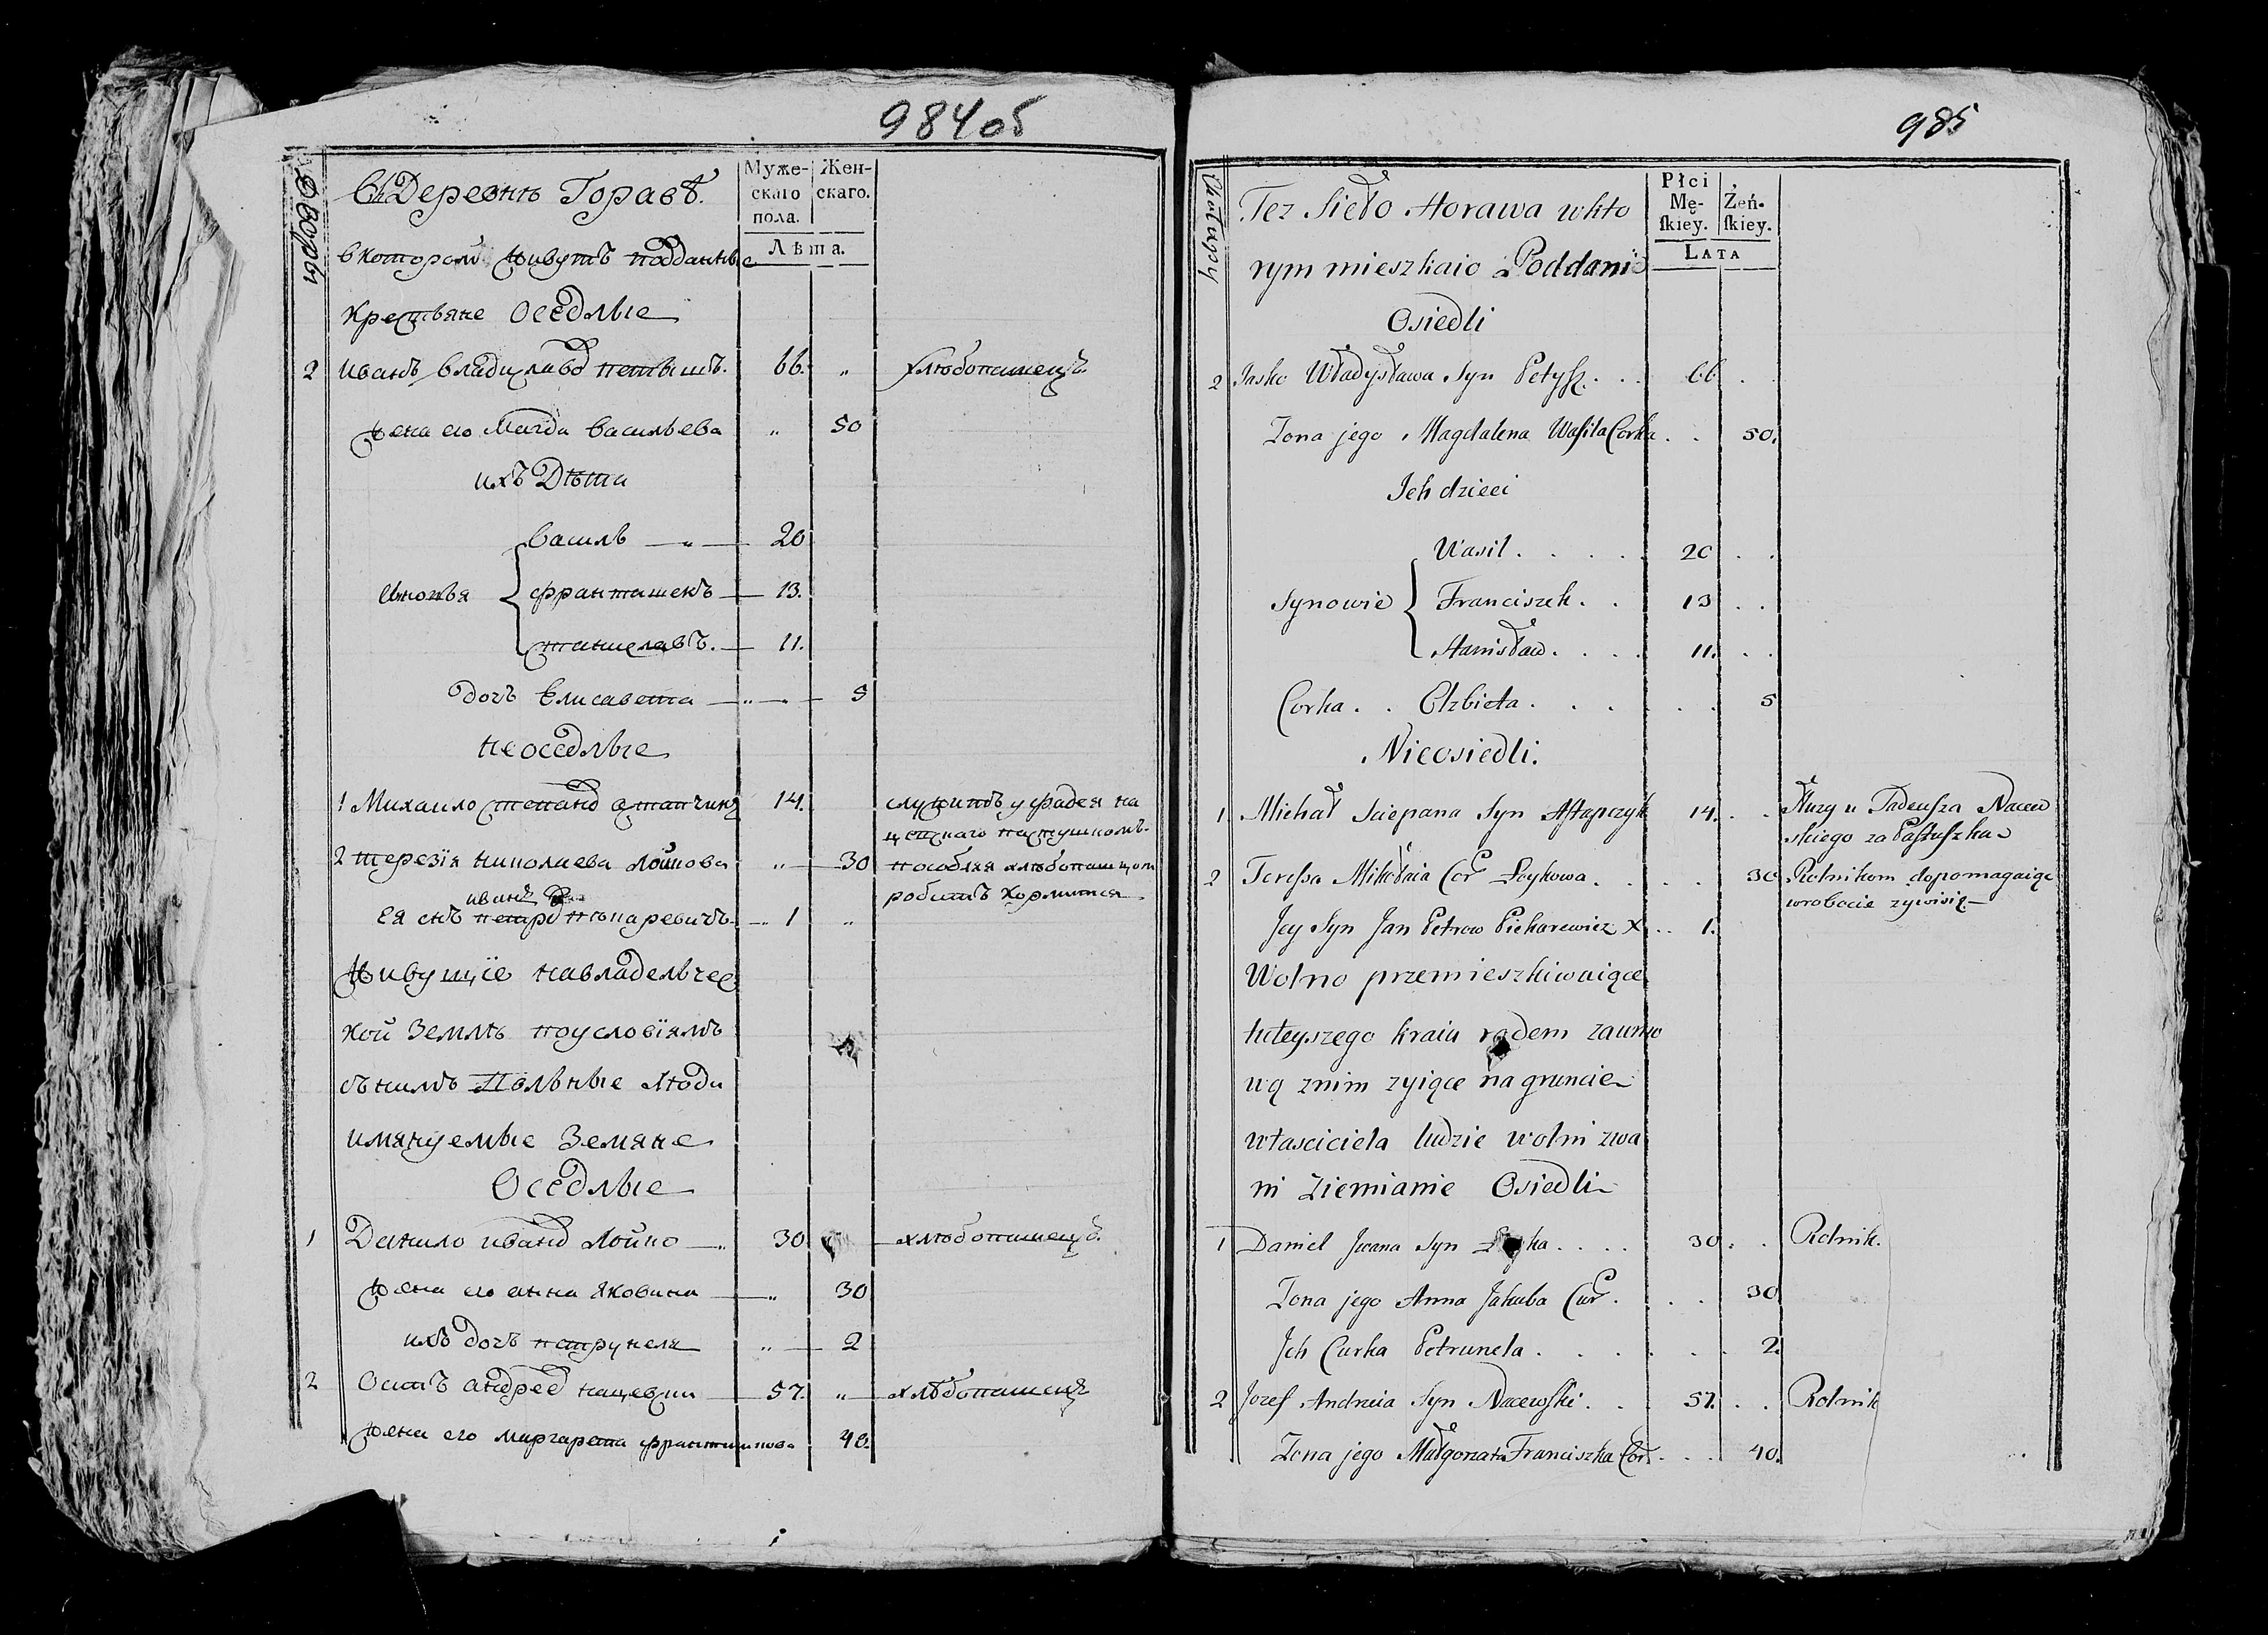 984об
Дворы
Въ Деревнѣ Горавѣ.
Муже-
скаго
пола.
Жен-
скаго.
Лѣта.
в которой живутъ подданные
крестьяне Оседлые
2 Иванъ Владиславов Петышъ. 66. „ хлебопашецъ
жена его Магда Васильева „ 50
ихъ Дѣти
Василь — „ — 20
Сыновья Франтишекъ — 13.
Станиславъ. — 11.
дочъ Елисавета — „ — 5
Неоседлые
1 Михаило Степанов Астапчикъ 14. служитъ у Фадея На
цевскаго пастушкомъ.
2 Терезїя Николаева Лойкова „ 30 пособляя хлебопашцом
робитъ кормится
Иванъ
Ея снъ Петров Пѣкаревичъ. — „ 1 „
Живущїе на владельчес
кой Землѣ по условїямъ
съ нимъ Вольные люди
имянуемые Земяне
Оседлые
1 Данило Иванов Лойко — „ 30 хлебопашецъ.
жена его Анна Яковина — „ 30
ихъ дочъ Петрунеля „ — 2
2 Осипъ Андреев Нацевски — 57. „ хлѣбопашецъ
жена его Маргарета Франтишкова 40.
985
Tez Sieło Horawa w kto
Płci
Mę-
ſkiey.
Żeń-
ſkiey.
LATA
rym mieszkaio Poddani
Osiedli
2 Jasko Władysława Syn Petyſz . . . 66 . .
Zona jego Magdalena Waſila Corka . . 50.
Jch dzieci
Wasil . . . . . 20 . .
Synowie Franciszek . . 13 . .
Stanisław . . . . 11. . .
Corka . . Elzbieta . . . . . . 5
Nieosiedli.
1 Michał Sciepana Syn Aſtapczyk 14. . . Słuzy u Tadeuſza Nacew
skiego za Paſtuſzka
2 Tereſsa Mikołaia Cor Łoykowa . . . . . 30 Rolnikom dopomagaiąc
w robocie zywi się —
Jey Syn Jan Petrow Piekarewicz X . . 1.
Wolno przemieszkiwaiące
tuteyszego kraiu rodem za umo
wą z nim zyiące na gruncie
własciciela ludzie wolni zwa
ni Ziemianie Osiedli
1 Daniel Jwana Syn Łoyka . . . . 30 . . Rolnik.
Zona jego Anna Jakuba Cur . . . . 30
Jch Curka Petrunela . . . . . . . 2.
2 Jozef Andreia Syn Nacewſki . . 57. . . Rolnik
Zona jego Małgorzata Franciszka Cor . . . 40.